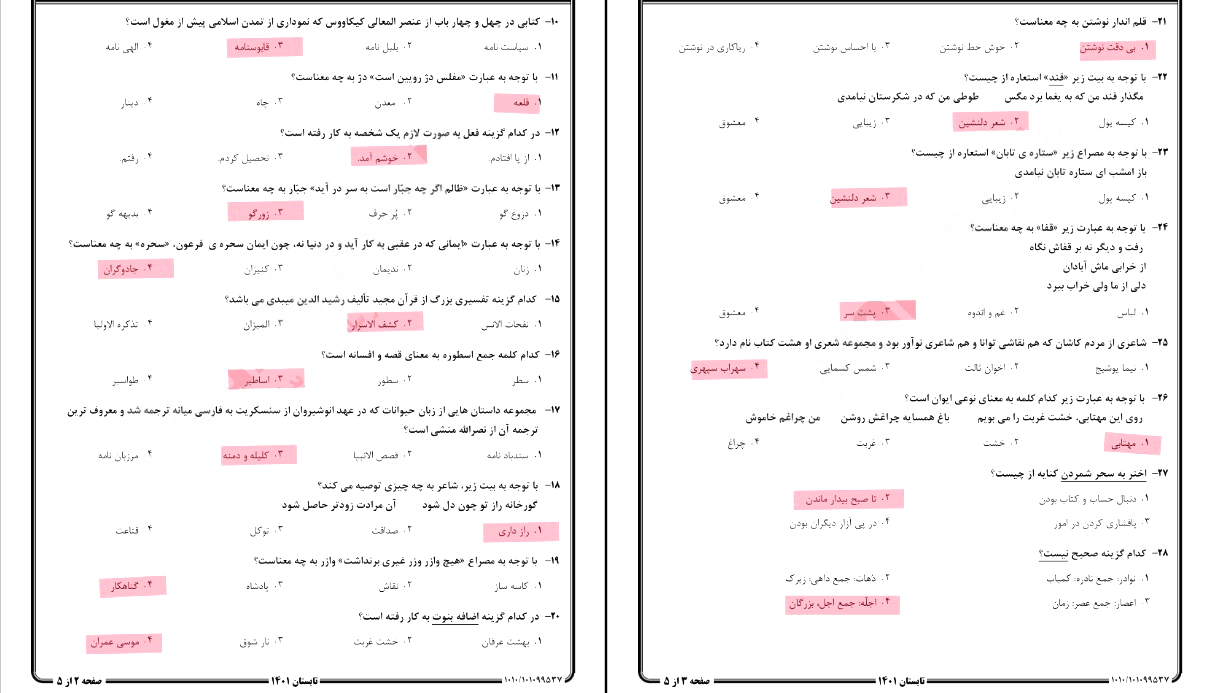 ۱۰- کتابی در چهل و چهار باب از عنصر المعالی کیکاووس که نموداری از تمدن اسلامی پیش از مغول است؟
۱. سیاست نامه ۲. بلبل نامه ۳. قابوسنامه ۴. الهی نامه
۱۱- با توجه به عبارت «مفلس دژ رویین است» دژ به چه معناست؟
۱. قلعه ۲. معدن ۳. چاه ۴. دینار
۱۲- در کدام گزینه فعل به صورت لازم یک شخصه به کار رفته است؟
۱. از پا افتادم. ۲. خوشم آمد. ۳. تحصیل کردم. ۴. رفتم.
۱۳- با توجه به عبارت «ظالم اگر چه جبّار است به سر در آید» جبّار به چه معناست؟
۱. دروغ گو ۲. پُر حرف ۳. زورگو ۴. بدیهه گو
۱۴- با توجه به عبارت «ایمانی که در عقبی به کار آید و در دنیا نه، چون ایمان سحره ی فرعون، «سحره» به چه معناست؟
۱. زنان ۲. ندیمان ۳. کنیزان ۴. جادوگران
۱۵- کدام گزینه تفسیری بزرگ از قرآن مجید تألیف رشید الدین میبدی می باشد؟
۱. نفحات الانس ۲. کشف الاسرار ۳. المیزان ۴. تذکره الاولیا
۱۶- کدام کلمه جمع اسطوره به معنای قصه و افسانه است؟
۱. سطر ۲. سطور ۳. اساطیر ۴. طواسیر
۱۷- مجموعه داستان هایی از زبان حیوانات که در عهد انوشیروان از سنسکریت به فارسی میانه ترجمه شد و معروف ترین
ترجمه آن از نصرالله منشی است؟
۱. سندباد نامه ۲. قصص الانبیا ۳. کلیله و دمنه ۴. مرزبان نامه
۱۸- با توجه به بیت زیر، شاعر به چه چیزی توصیه می کند؟
گورخانه راز تو چون دل شود آن مرادت زودتر حاصل شود
۱. راز داری ۲. صداقت ۳. توکل ۴. قناعت
۱۹- با توجه به مصراع «هیچ وازر وزر غیری برنداشت» وازر به چه معناست؟
۱. کاسه ساز ۲. نقاش ۳. پادشاه ۴. گناهکار
۲۰- در کدام گزینه اضافه بنوت به کار رفته است؟
۱. بهشت عرفان ۲. خشت غربت ۳. نار شوق ۴. موسی عمران
صفحه ۲ از ۵ تابستان ۱۴۰۱ ۱۰۱۰/۱۰۱۰۹۹۵۳۷
۲۱- قلم انداز نوشتن به چه معناست؟
۱. بی دقت نوشتن ۲. خوش خط نوشتن ۳. با احساس نوشتن ۴. ریاکاری در نوشتن
۲۲- با توجه به بیت زیر «قند» استعاره از چیست؟
مگذار قند من که به یغما برد مگس طوطی من که در شکرستان نیامدی
۱. کیسه پول ۲. شعر دلنشین ۳. زیبایی ۴. معشوق
۲۳- با توجه به مصراع زیر «ستاره ی تابان» استعاره از چیست؟
باز امشب ای ستاره تابان نیامدی
۱. کیسه پول ۲. زیبایی ۳. شعر دلنشین ۴. معشوق
۲۴- با توجه به عبارت زیر «قفا» به چه معناست؟
رفت و دیگر نه بر قفاش نگاه
از خرابی ماش آبادان
دلی از ما ولی خراب ببرد
۱. لباس ۲. غم و اندوه ۳. پشت سر ۴. معشوق
۲۵- شاعری از مردم کاشان که هم نقاشی توانا و هم شاعری نوآور بود و مجموعه شعری او هشت کتاب نام دارد؟
۱. نیما یوشیج ۲. اخوان ثالث ۳. شمس کسمایی ۴. سهراب سپهری
۲۶- با توجه به عبارت زیر کدام کلمه به معنای نوعی ایوان است؟
روی این مهتابی، خشت غربت را می بویم باغ همسایه چراغش روشن من چراغم خاموش
۱. مهتابی ۲. خشت ۳. غربت ۴. چراغ
۲۷- اختر به سحر شمردن کنایه از چیست؟
۱. دنبال حساب و کتاب بودن ۲. تا صبح بیدار ماندن
۳. پافشاری کردن در امور ۴. در پی آزار دیگران بودن
۲۸- کدام گزینه صحیح نیست؟
۱. نوادر: جمع نادره: کمیاب ۲. دُهات: جمع داهی: زیرک
۳. اعصار: جمع عصر: زمان ۴. اجلّه: جمع اجل، بزرگان
صفحه ۳ از ۵ تابستان ۱۴۰۱ ۱۰۱۰/۱۰۱۰۹۹۵۳۷